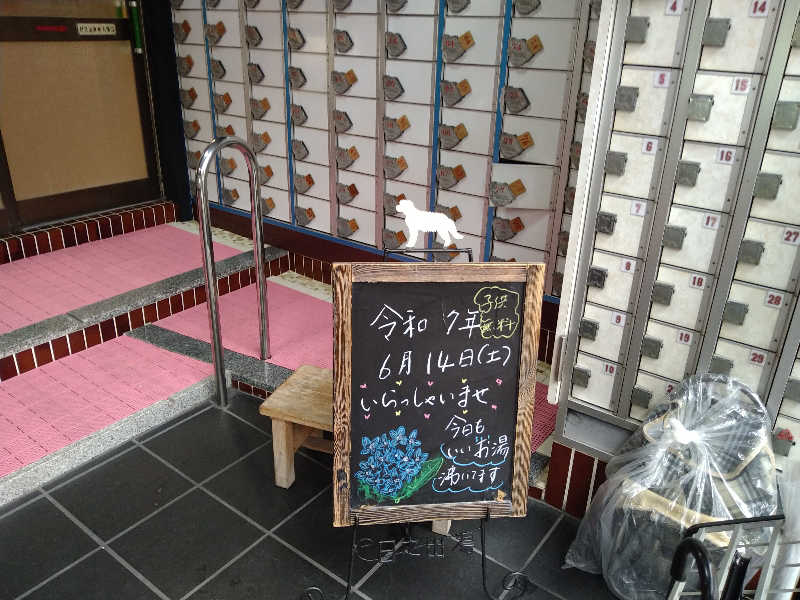 令和 7年
子供
無料
6月 14日(土)
いらっしゃいませ
今日も
いいお湯
沸いてます
4
5
6
7
8
9
10
14
15
16
17
18
19
27
28
29